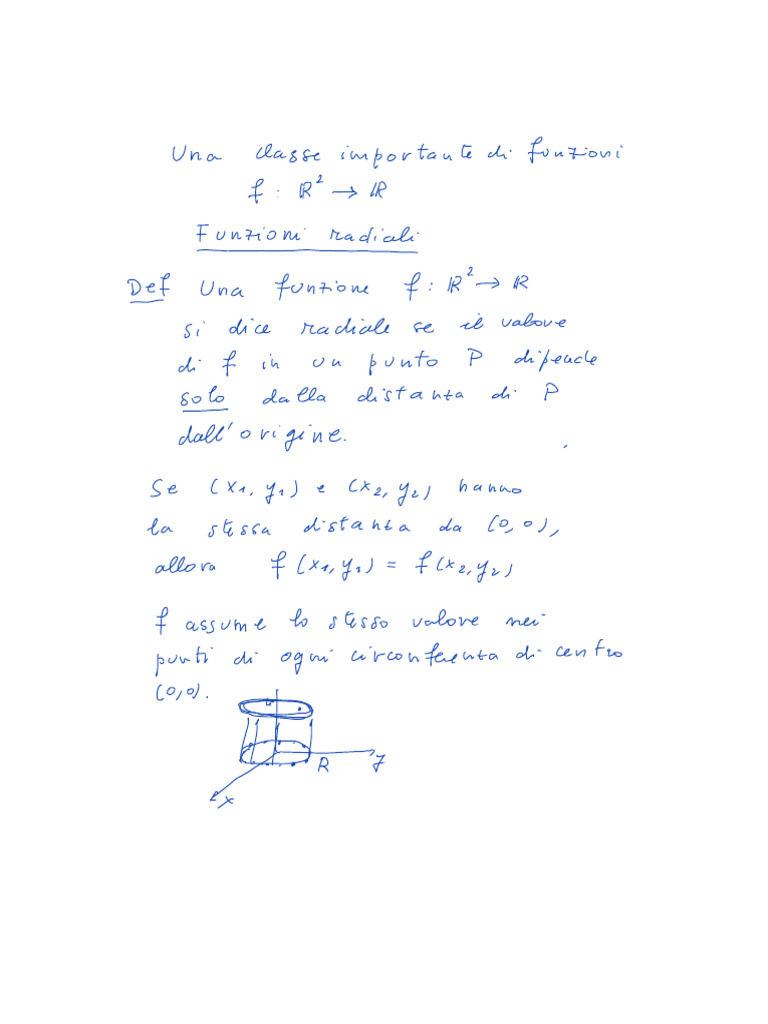 Una classe importante di funzioni
f : ℝ² → ℝ
Funzioni radiali
Def Una funzione f : ℝ² → ℝ
si dice radiale se il valore
di f in un punto P dipende
solo dalla distanza di P
dall'origine.
Se (x₁, y₁) e (x₂, y₂) hanno
la stessa distanza da (0,0),
allora f(x₁, y₁) = f(x₂, y₂)
f assume lo stesso valore nei
punti di ogni circonferenza di centro
(0,0).
R y
x